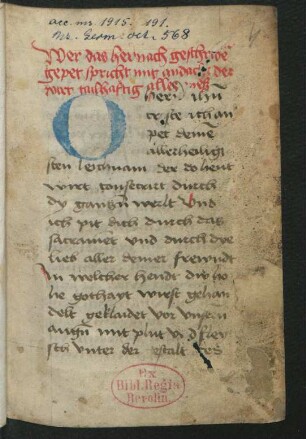 acc. ms. 1915. 191.
Ms. germ. oct. 568
Wer das hernach geschribē
gepet spricht mit andacht der
wirt tailhaftig aller mess
O herr ihū
criste ich an
pet deinē
allerheilig
sten leichnam der do hewt
wirt consecrirt durch
dy gantzn werlt Vnd
ich pit dich durch das
sacrament vnd durch dye
lieb aller deiner frewndt
In welcher hendt die ho
he gothayt wirst gehan
delt gekleidet vor vnsern
augn mit plut vnd fley
sch vnter der gestalt des
Ex
Bibl. Regia
Berolin.